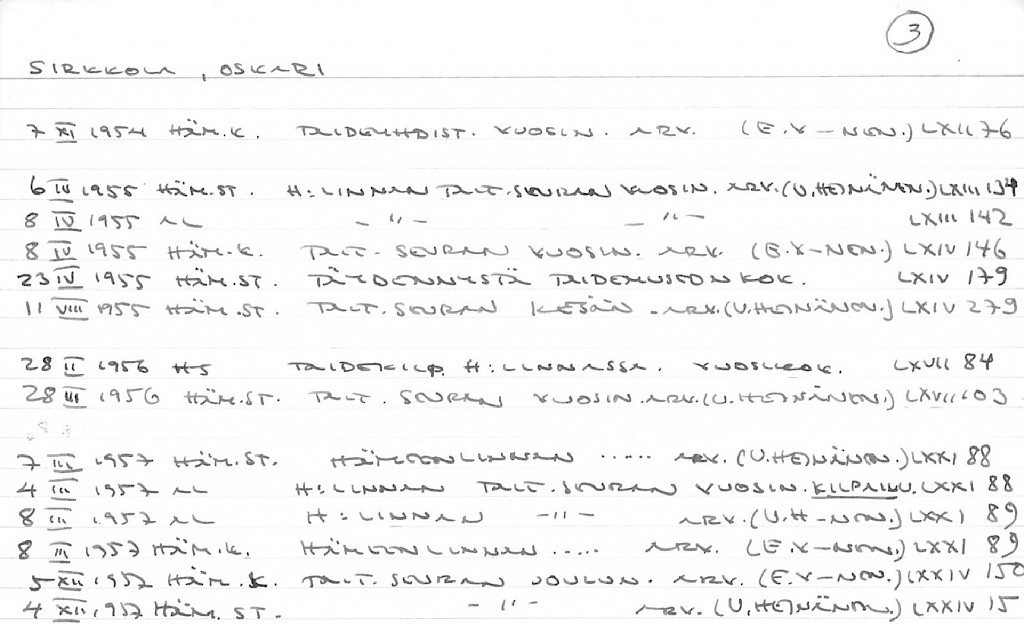 3
SIRKKOLA, OSKARI
7 XI 1954 HÄM.K. TAIDEYHDIST. VUOSIN. ARV. (E.V–NEN.) LXII 76
6 IV 1955 HÄM.ST. H:LINNAN TAIT.SEURAN VUOSIN. ARV. (U.HEINÄNEN.) LXIII 134
8 IV 1955 AL –"– –"– LXIII 142
8 IV 1955 HÄM.K. TAIT. SEURAN VUOSIN. ARV. (E.V–NEN.) LXIV 146
23 IV 1955 HÄM.ST. TÄYDENNYSTÄ TAIDEMUSEON KOK. LXIV 179
11 VIII 1955 HÄM.ST. TAIT. SEURAN KESÄN. ARV. (U.HEINÄNEN.) LXIV 279
28 II 1956 HS TAIDEKILP. H:LINNASSA. VUOSIKOK. LXVII 84
28 III 1956 HÄM.ST. TAIT. SEURAN VUOSIN. ARV. (U.HEINÄNEN.) LXVII 103
7 III 1957 HÄM.ST. HÄMEENLINNAN ..... ARV. (U.HEINÄNEN.) LXXI 88
4 III 1957 AL H:LINNAN TAIT.SEURAN VUOSIN. KILPAILU. LXXI 88
8 III 1957 AL H:LINNAN –"– ARV. (U.H–NEN.) LXXI 89
8 III 1957 HÄM.K. HÄMEENLINNAN ..... ARV. (E.V–NEN.) LXXI 89
5 XII 1957 HÄM.K. TAIT. SEURAN JOULUN. ARV. (E.V–NEN.) LXXIV 150
4 XII 1957 HÄM. ST. –"– ARV. (U.HEINÄNEN.) LXXIV 15